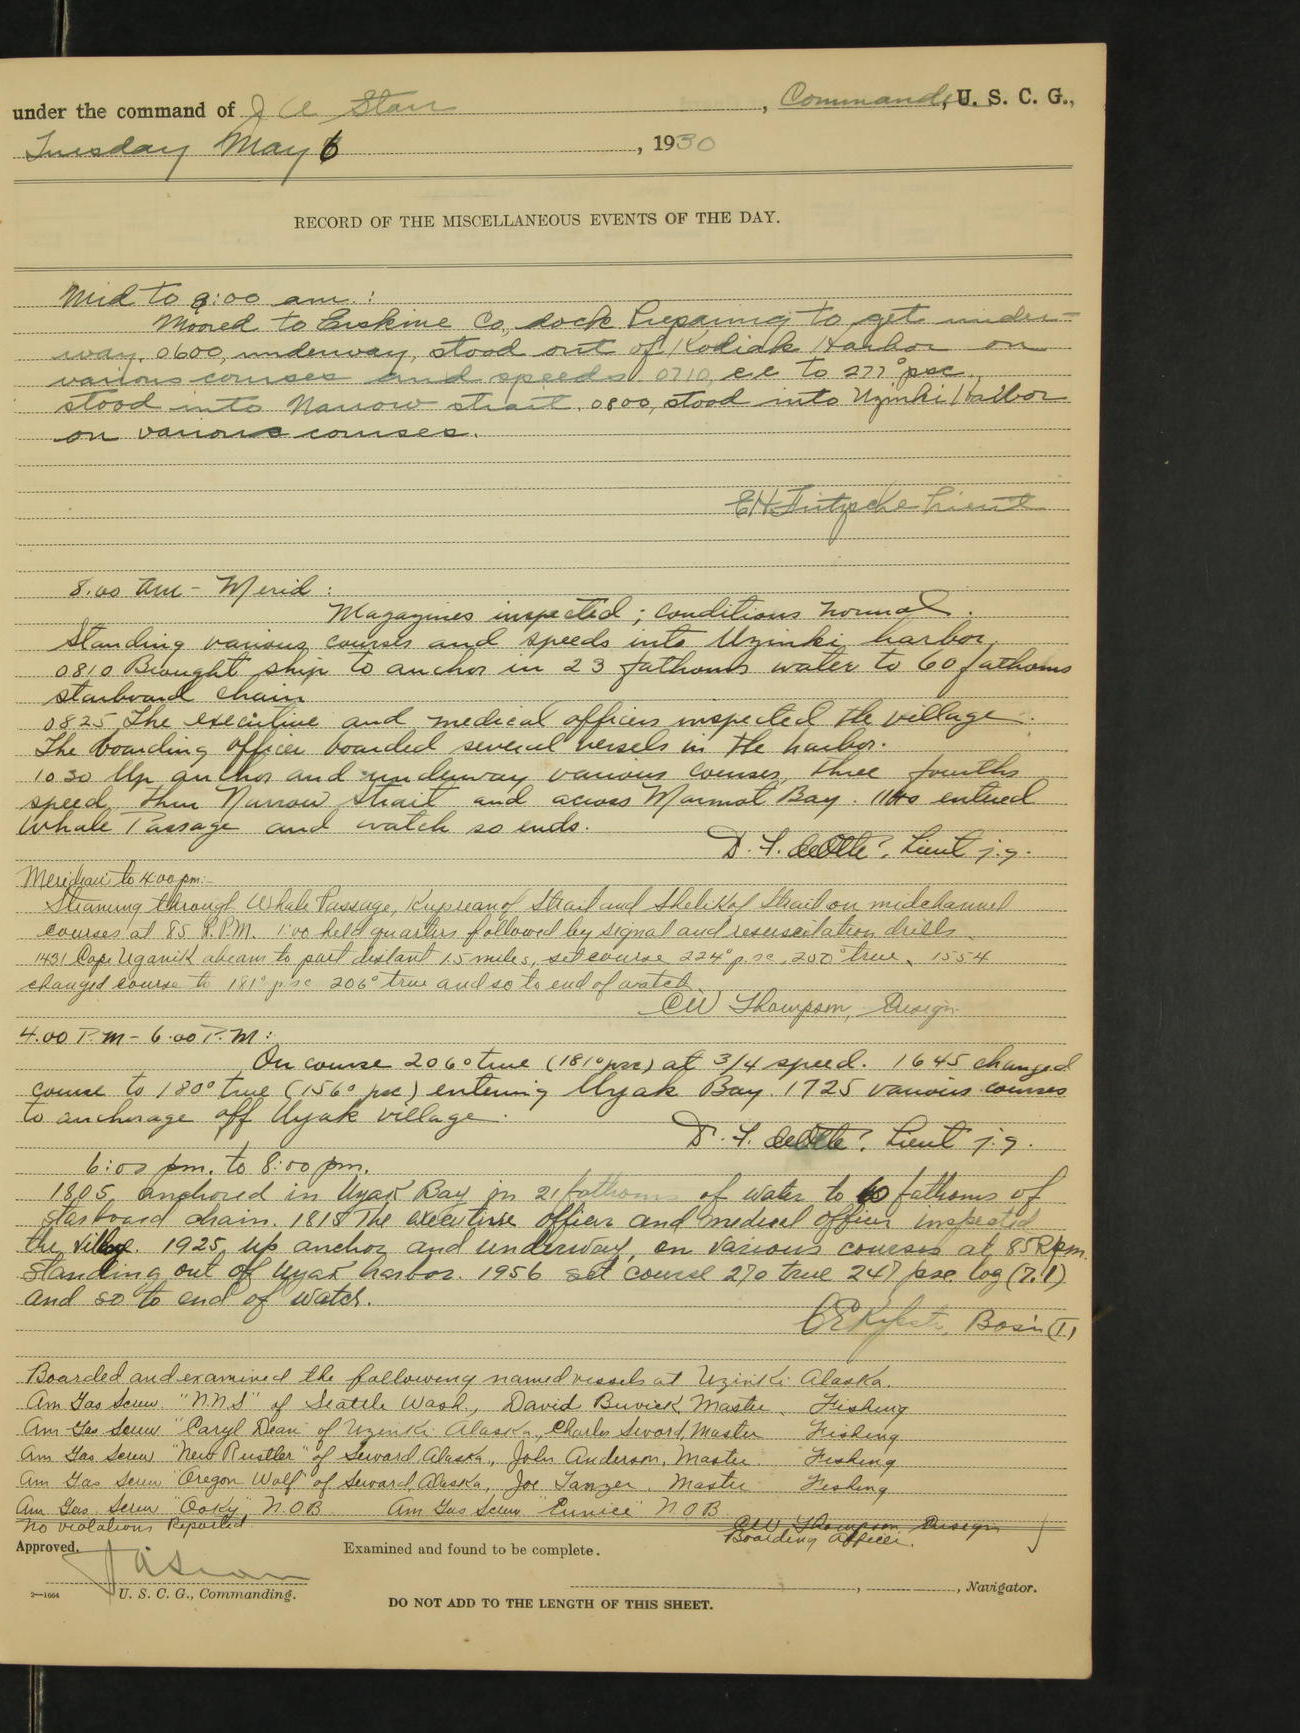 under the command of J A Starr, Commander, U. S. C. G.,
Tuesday May 6, 1930
RECORD OF THE MISCELLANEOUS EVENTS OF THE DAY.
Mid to 8:00 am.:
Moored to Erskine Co., dock Preparing to get under-
way. 0600, underway, stood out of Kodiak Harbor on
various courses and speeds 0710, c/c to 277° psc.,
stood into Narrow strait. 0800, stood into Uzinki Harbor
on various courses.
EH Fritzsche Lieut
8.00 am - Merid:
Magazines inspected; conditions normal.
Standing various courses and speeds into Uzinki harbor,
0810 Brought ship to anchor in 23 fathoms water to 60 fathoms
starboard chain
0825, The executive and medical officers inspected the village.
The boarding officer boarded several vessels in the harbor.
1030 Up anchor and underway various courses, three fourths
speed, thru Narrow Strait and across Marmot Bay. entered
Whale Passage and watch so ends.
D. F. deOtte, Lieut j.g.
Meridian to 4:00 pm:-
Steaming through Whale Passage, Kupreanof Strait and Shelikof Strait on midchannel
courses at 85 R.P.M. 1:00 held quarters followed by signal and resuscitation drills.
1431 Cape Uganik abeam to port distant 1.5 miles, set course 224° p.sc., 250° true. 1554
changed course to 181° p.sc 206° true and so to end of watch
CW Thompson, Ensign
4.00 P.M - 6.00 P.M:
On course 206° true (181° psc) at 3/4 speed. 1645 changed
course to 180° true (156° psc) entering Uyak Bay. 1725 various courses
to anchorage off Uyak village.
D. F. deOtte, Lieut j.g.
6:00 pm. to 8:00 pm.
1805, anchored in Uyak Bay in 21 fathoms of water to 60 fathoms of
starboard chain. 1815 The executive officer and medical officer inspected
the village. 1925, up anchor and underway, on various courses at 85 R.p.m.
Standing out of Uyak harbor. 1956 set course 270 true 247 psc log (7.1)
and so to end of watch.
Bos'n (T)
Boarded and examined the following named vessels at Uzinki Alaska.
Am Gas Screw "N.N.S" of Seattle Wash., David Master. Fishing
Am Gas Screw "Caryl Dean" of Uzinki Alaska., Charles Sword, Master Fishing
Am Gas Screw "New Rustler" of Seward Alaska., John Anderson, Master. Fishing
Am Gas Screw "Oregon Wolf" of Seward, Alaska, Joe Tanzer. Master Fishing
Am Gas. Screw "Ooky" N.O.B. Am Gas Screw "Eunice" N O B
No violations Reported
CW Thompson Ensign
Boarding officer.
Approved.
Examined and found to be complete.
U. S. C. G., Commanding.
, Navigator.
2—1664
DO NOT ADD TO THE LENGTH OF THIS SHEET.